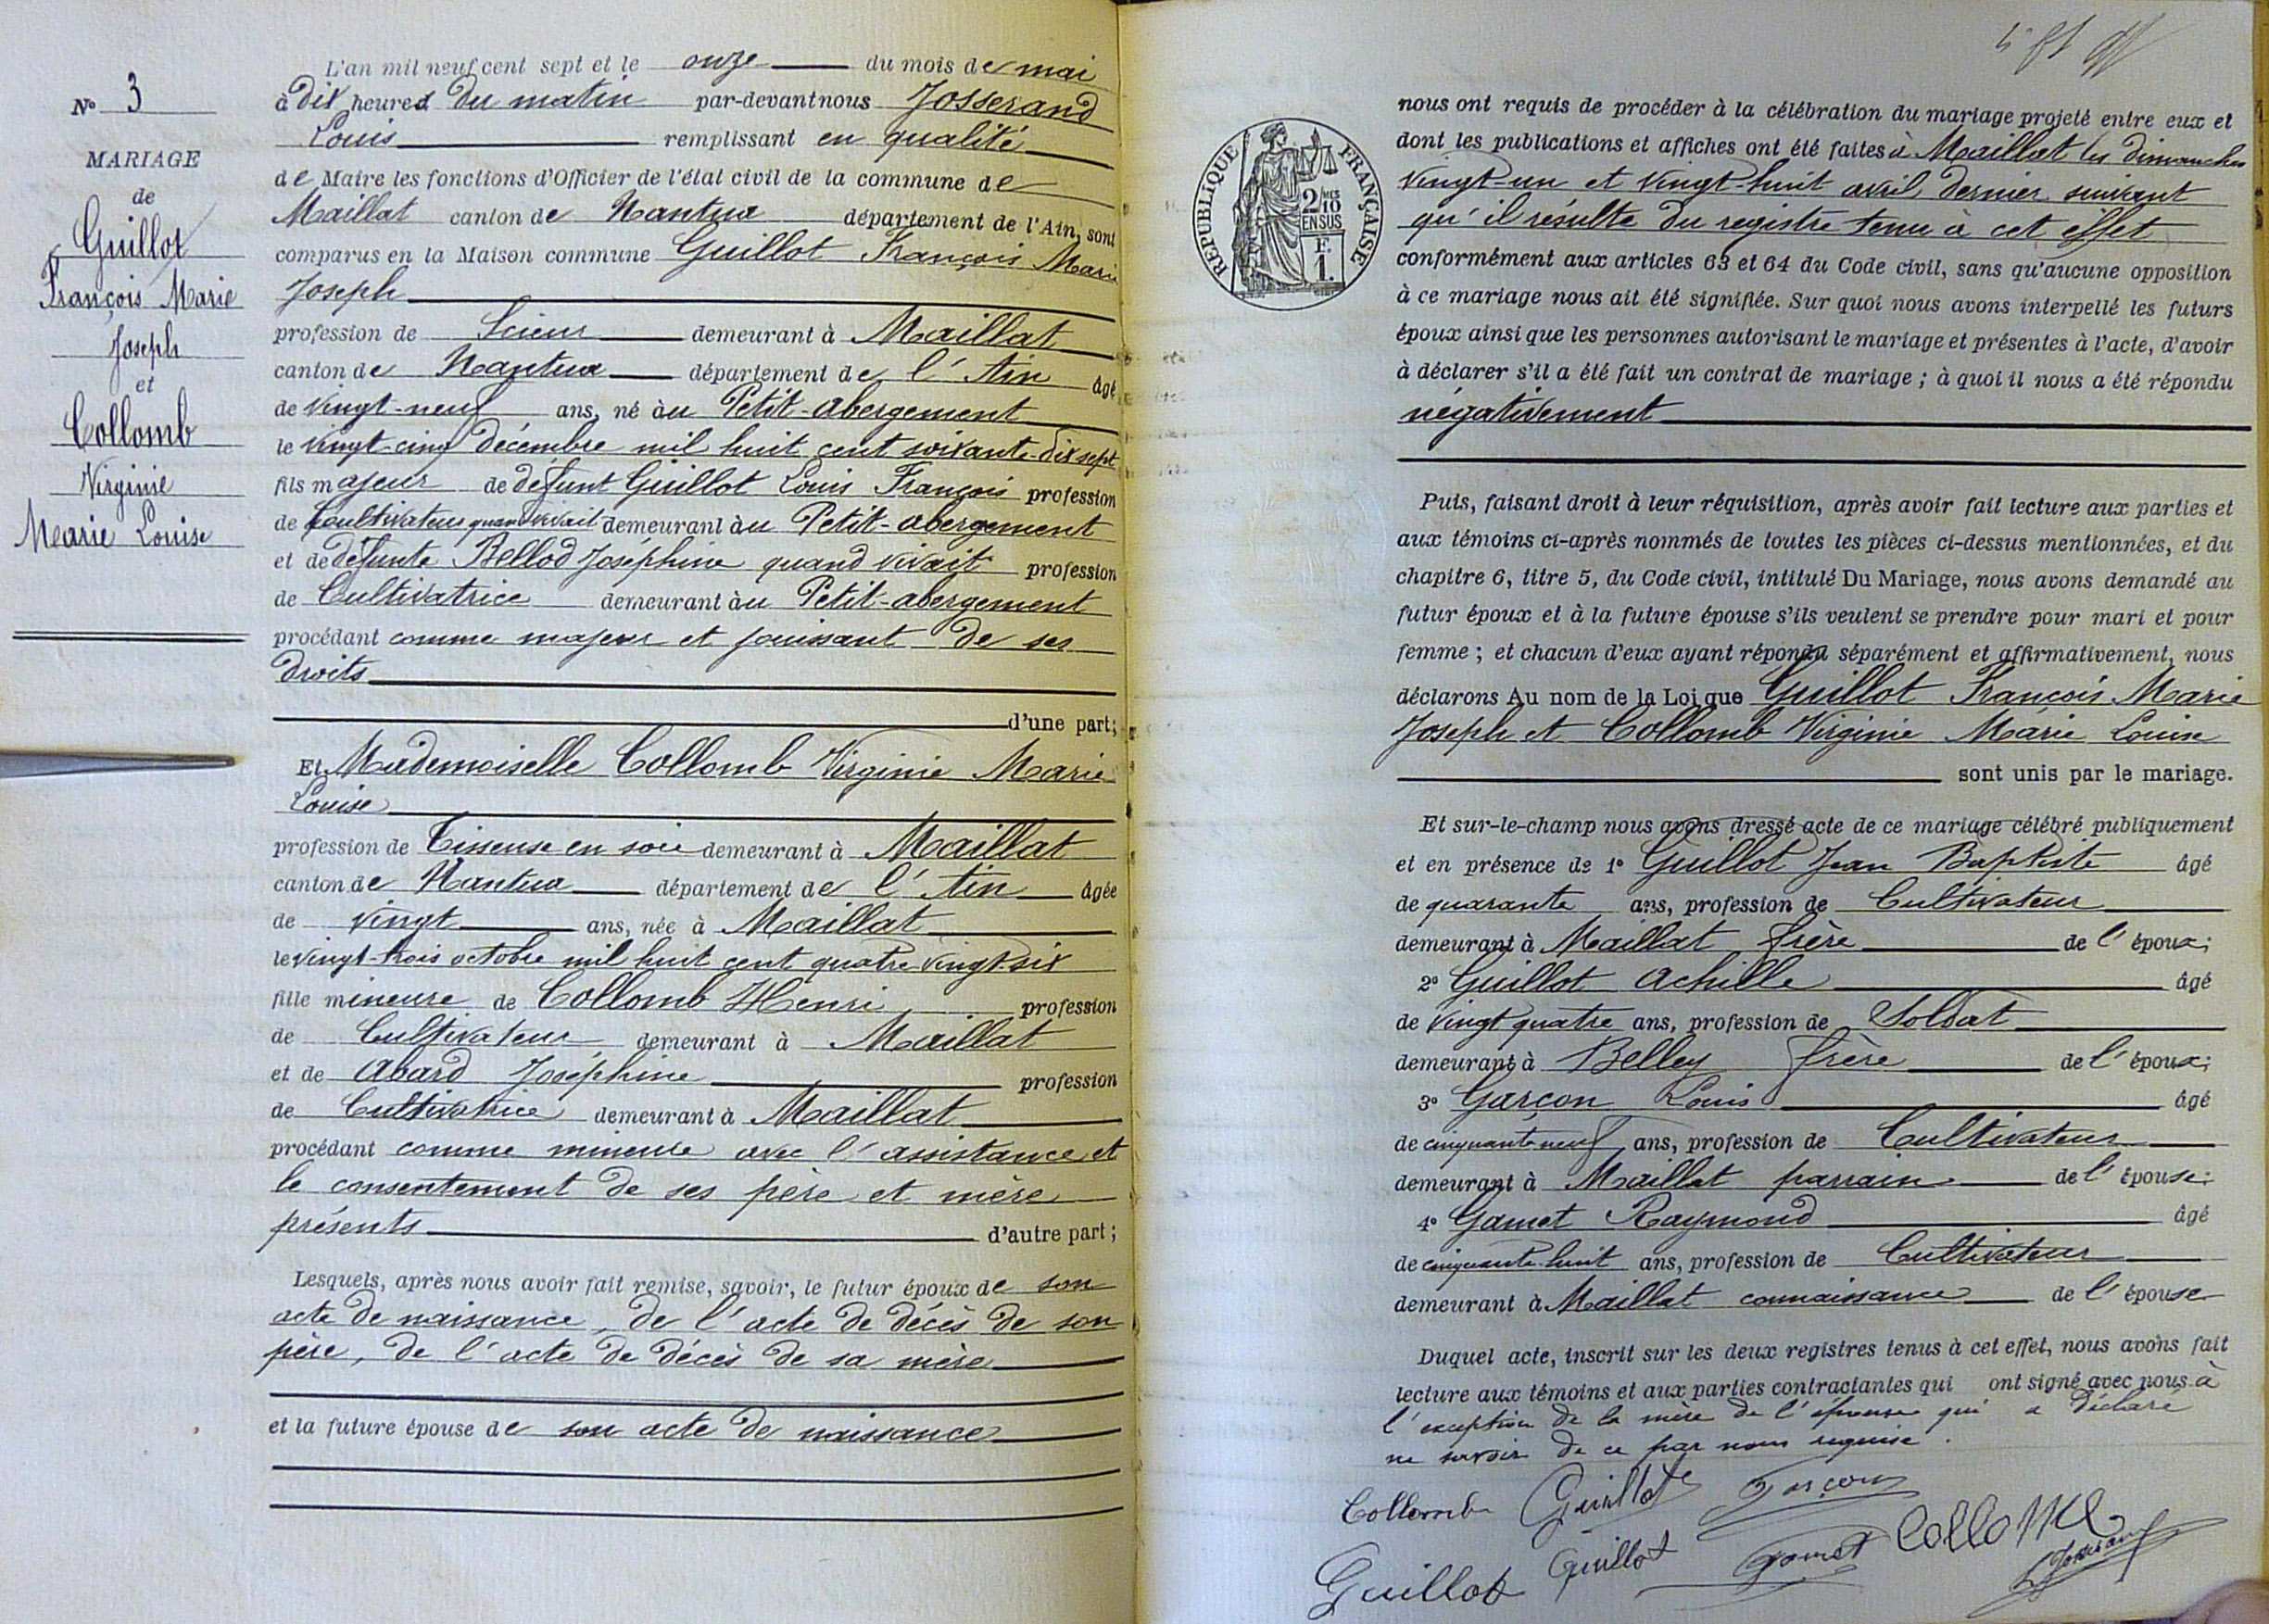 N° 3
MARIAGE
de
Guillot
François Marie
Joseph
et
Collomb
Virginie
Marie Louise
L'an mil neuf cent sept et le onze du mois de mai
à dix heures du matin par-devant nous Josserand
Louis remplissant en qualité
de Maire les fonctions d'Officier de l'état civil de la commune de
Maillat canton de Nantua département de l'Ain, sont
comparus en la Maison commune Guillot François Marie
Joseph
profession de Scieur demeurant à Maillat
canton de Nantua département de l'Ain âgé
de vingt-neuf ans, né au Petit-Abergement
le vingt-cinq décembre mil huit cent soixante-dix sept
fils majeur de défunt Guillot Louis François profession
de Cultivateur quand vivait demeurant au Petit-abergement
et de défunte Bellod Joséphine quand vivait profession
de Cultivatrice demeurant au Petit-abergement
procédant comme majeur et jouissant de ses
droits
d'une part;
Et Mademoiselle Collomb Virginie Marie
Louise
profession de Tisseuse en soie demeurant à Maillat
canton de Nantua département de l'Ain âgée
de vingt ans, née à Maillat
le vingt-trois octobre mil huit cent quatre vingt-six
fille mineure de Collomb Henri profession
de Cultivateur demeurant à Maillat
et de Abard Joséphine profession
de Cultivatrice demeurant à Maillat
procédant comme mineure avec l'assistance et
le consentement de ses père et mère
présents d'autre part;
Lesquels, après nous avoir fait remise, savoir, le futur époux de son
acte de naissance, de l'acte de décès de son
père, de l'acte de décès de sa mère
et la future épouse de son acte de naissance
RÉPUBLIQUE FRANÇAISE
2 MES
10
EN SUS
F.
1.
nous ont requis de procéder à la célébration du mariage projeté entre eux et
dont les publications et affiches ont été faites à Maillat les dimanches
vingt-un et vingt-huit avril dernier suivant
qu'il résulte du registre tenu à cet effet
conformément aux articles 63 et 64 du Code civil, sans qu'aucune opposition
à ce mariage nous ait été signifiée. Sur quoi nous avons interpellé les futurs
époux ainsi que les personnes autorisant le mariage et présentes à l'acte, d'avoir
à déclarer s'il a été fait un contrat de mariage ; à quoi il nous a été répondu
négativement
Puis, faisant droit à leur réquisition, après avoir fait lecture aux parties et
aux témoins ci-après nommés de toutes les pièces ci-dessus mentionnées, et du
chapitre 6, titre 5, du Code civil, intitulé Du Mariage, nous avons demandé au
futur époux et à la future épouse s'ils veulent se prendre pour mari et pour
femme ; et chacun d'eux ayant répondu séparément et affirmativement, nous
déclarons Au nom de la Loi que Guillot François Marie
Joseph et Collomb Virginie Marie Louise
sont unis par le mariage.
Et sur-le-champ nous avons dressé acte de ce mariage célébré publiquement
et en présence de 1° Guillot Jean Baptiste âgé
de quarante ans, profession de Cultivateur
demeurant à Maillat frère de l'époux;
2° Guillot Achille âgé
de vingt quatre ans, profession de Soldat
demeurant à Belley frère de l'époux;
3° Garçon Louis âgé
de cinquante neuf ans, profession de Cultivateur
demeurant à Maillat parrain de l'épouse;
4° Gamet Raymond âgé
de cinquante-huit ans, profession de Cultivateur
demeurant à Maillat connaissance de l'épouse
Duquel acte, inscrit sur les deux registres tenus à cet effet, nous avons fait
lecture aux témoins et aux parties contractantes qui ont signé avec nous à
l'exception de la mère de l'épouse qui a déclaré
ne savoir de ce par nous requise.
Collomb Guillot Garçon
Guillot Guillot Gamet Collomb
Josserand